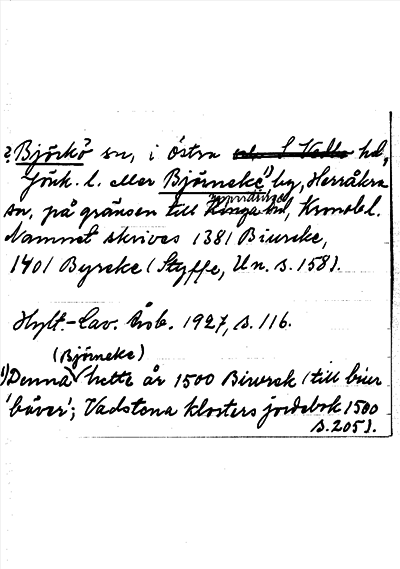 ? Björkö? sn, i östra och S Vedbo hd,
Jönk. l. eller Björneke¹⁾ by, Herråkra
sn, på gränsen till Uppvidinge hd, Kronob l.
Namnet skrives 1381 Biureke,
1401 Byreke (Styffe, Un. s. 158).
Hylt.-Cav. Årsb. 1927, s. 116.
(Björneke)
¹⁾ Denna hette år 1500 Biurek (till biur
'bäver'; Vadstena klosters jordebok 1500
s. 205).